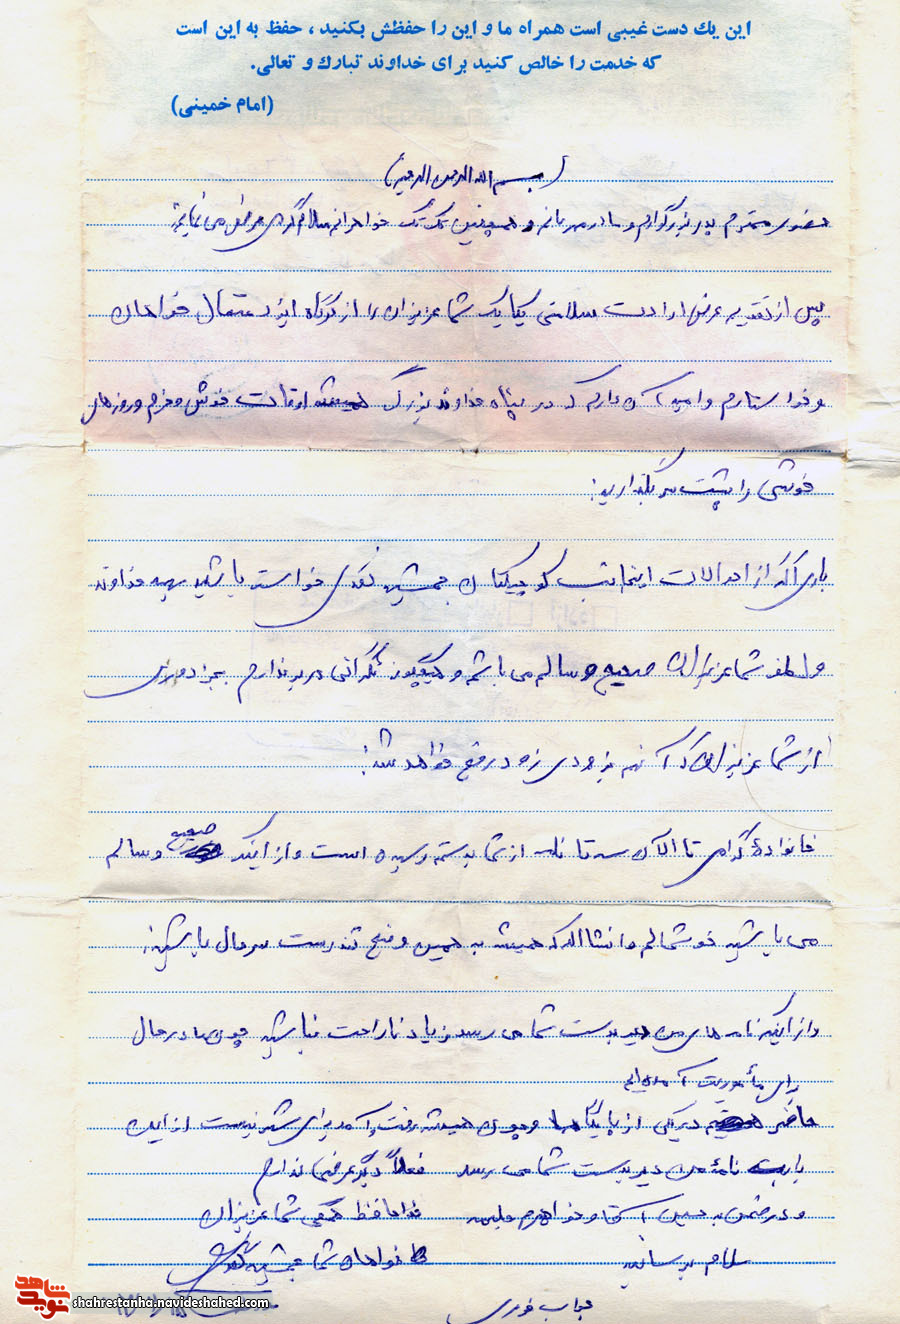 این یك دست غیبی است همراه ما و این را حفظش بکنید ، حفظ به این است
که خدمت را خالص کنید برای خداوند تبارك و تعالی.
(امام خمینی)
(بسم الله الرحمن الرحیم)
حضور محترم پدر بزرگوارم و مادر مهربانم و همچنین تک تک خواهرانم سلام گرمی عرض می نمایم:
پس از تقدیم عرض ارادت سلامتی یکایک شما عزیزان را از درگاه ایزد متعال خواهان
و خواستارم و امید آن دارم که در پناه خداوند بزرگ همیشه اوقات خوش و خرم و روزهای
خوشی را پشت سر بگذارید:
باری اگر از احوالات اینجانب کوچیکتان جمشید نقدی خواسته باشید بهید خداوند
و لطف شما عزیزان صحیح و سالم می باشم و هیچگونه نگرانی در بر ندارم بجز دوری
از شما عزیزان که آنهم بزودی زود رفع خواهد شد:
خانواده گرامی تا الآن سه تا نامه از شما بدستم رسیده است و از اینکه صحیح و سالم
می باشید خوشحالم و انشاالله که همیشه به همین وضع تندرست سرحال باشید:
و از اینکه نامه های من دیر بدست شما می رسد زیاد ناراحت نباشید چون ما در حال
برای مأموریت آمده ایم
حاضر در یکی از پایگاها و چون همیشه رفت و آمد برای شهر نیست از این
بابت نامه من دیر بدست شما می رسد فعلاً دیگر عرضی ندارم
و در ضمن به حسین آقا و خواهرم حلیمه
خداحافظ همگی شما عزیزان
سلام برسانید
خواهان شما جمشید نقدی
جواب فوری
شاهد
نوید
shahrestanha.navideshahed.com